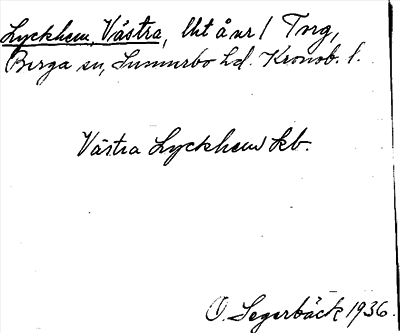 Lyckhem, Västra, lht å nr 1 Tng,
Berga sn, Sunnerbo hd. Kronob. l.
Västra Lyckhem kb.
O. Segerbäck 1936.